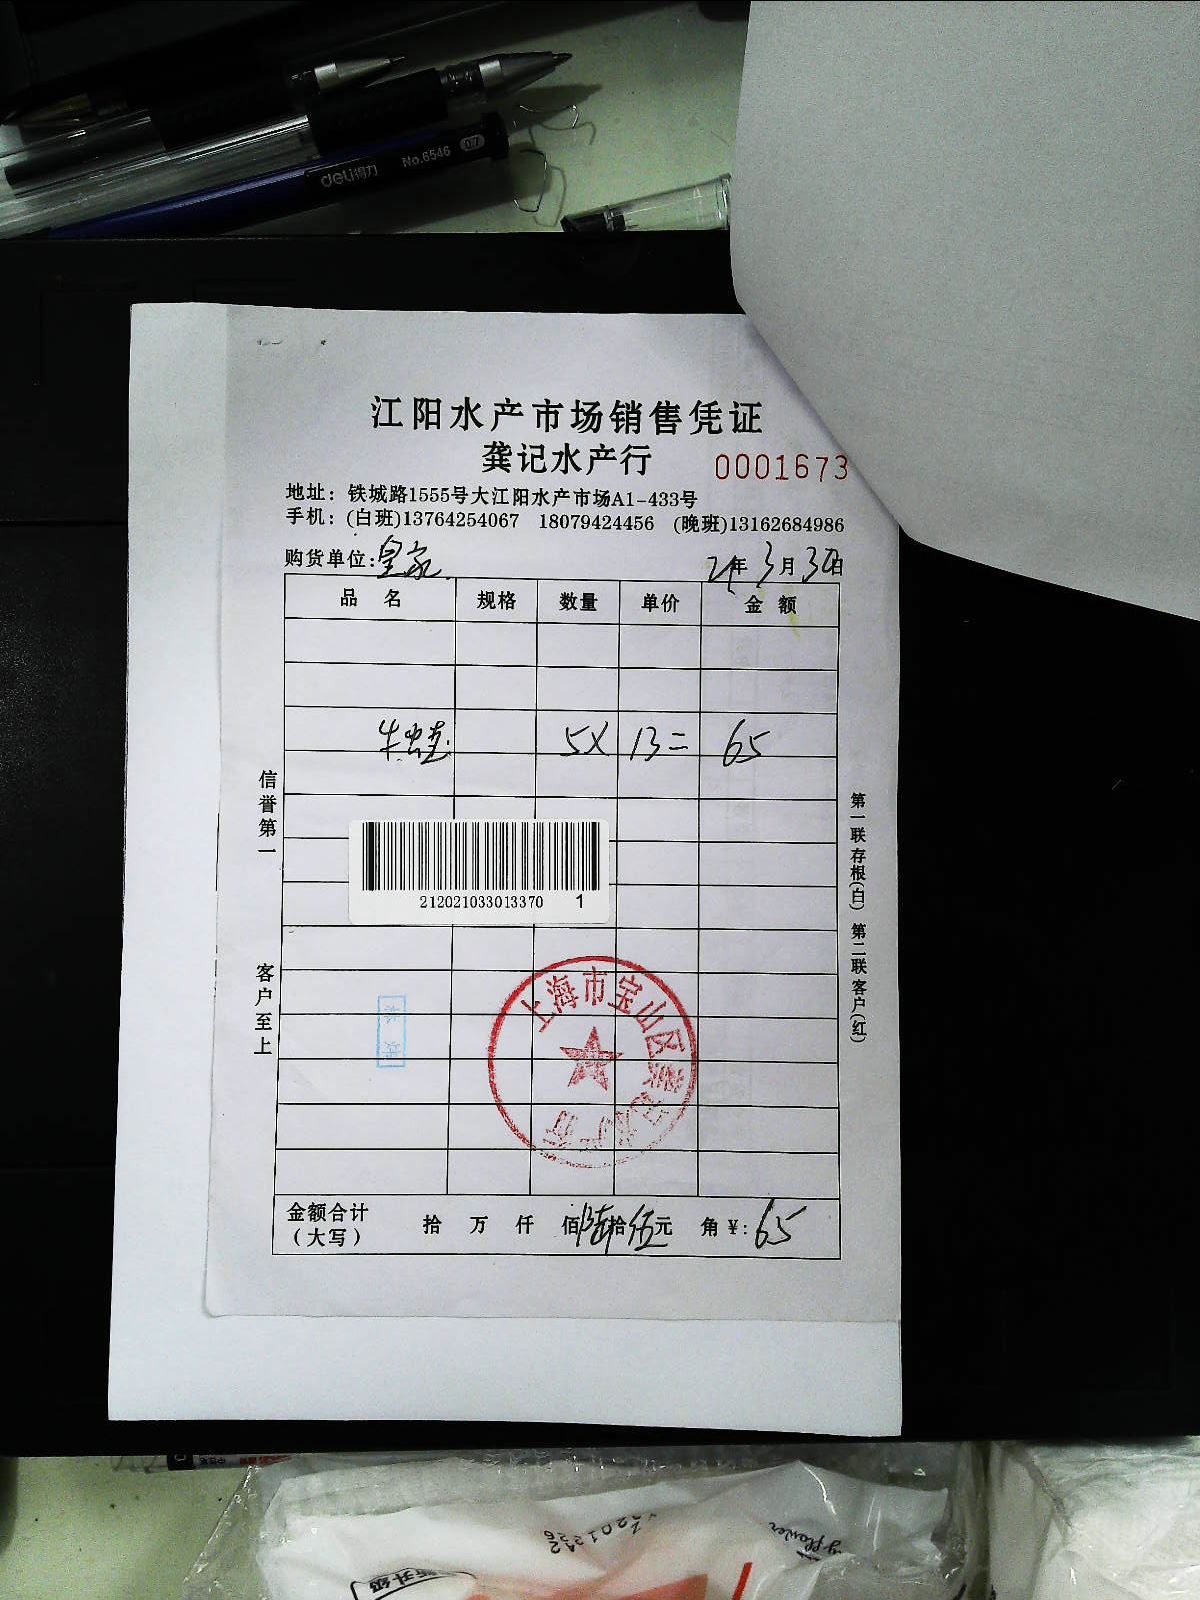 deli得力 No.6546
江阳水产市场销售凭证
龚记水产行 0001673
地址：铁城路1555号大江阳水产市场A1-433号
手机：(白班)13764254067 18079424456 (晚班)13162684986
购货单位：皇家 21年3月30日
品名 规格 数量 单价 金额
5X 13= 65
信誉第一
客户至上
212021033013370 1
上海市宝山区龚记水产行
金额合计（大写） 拾 万 仟 佰陆拾伍元 角￥：65
第一联存根(白) 第二联客户(红)